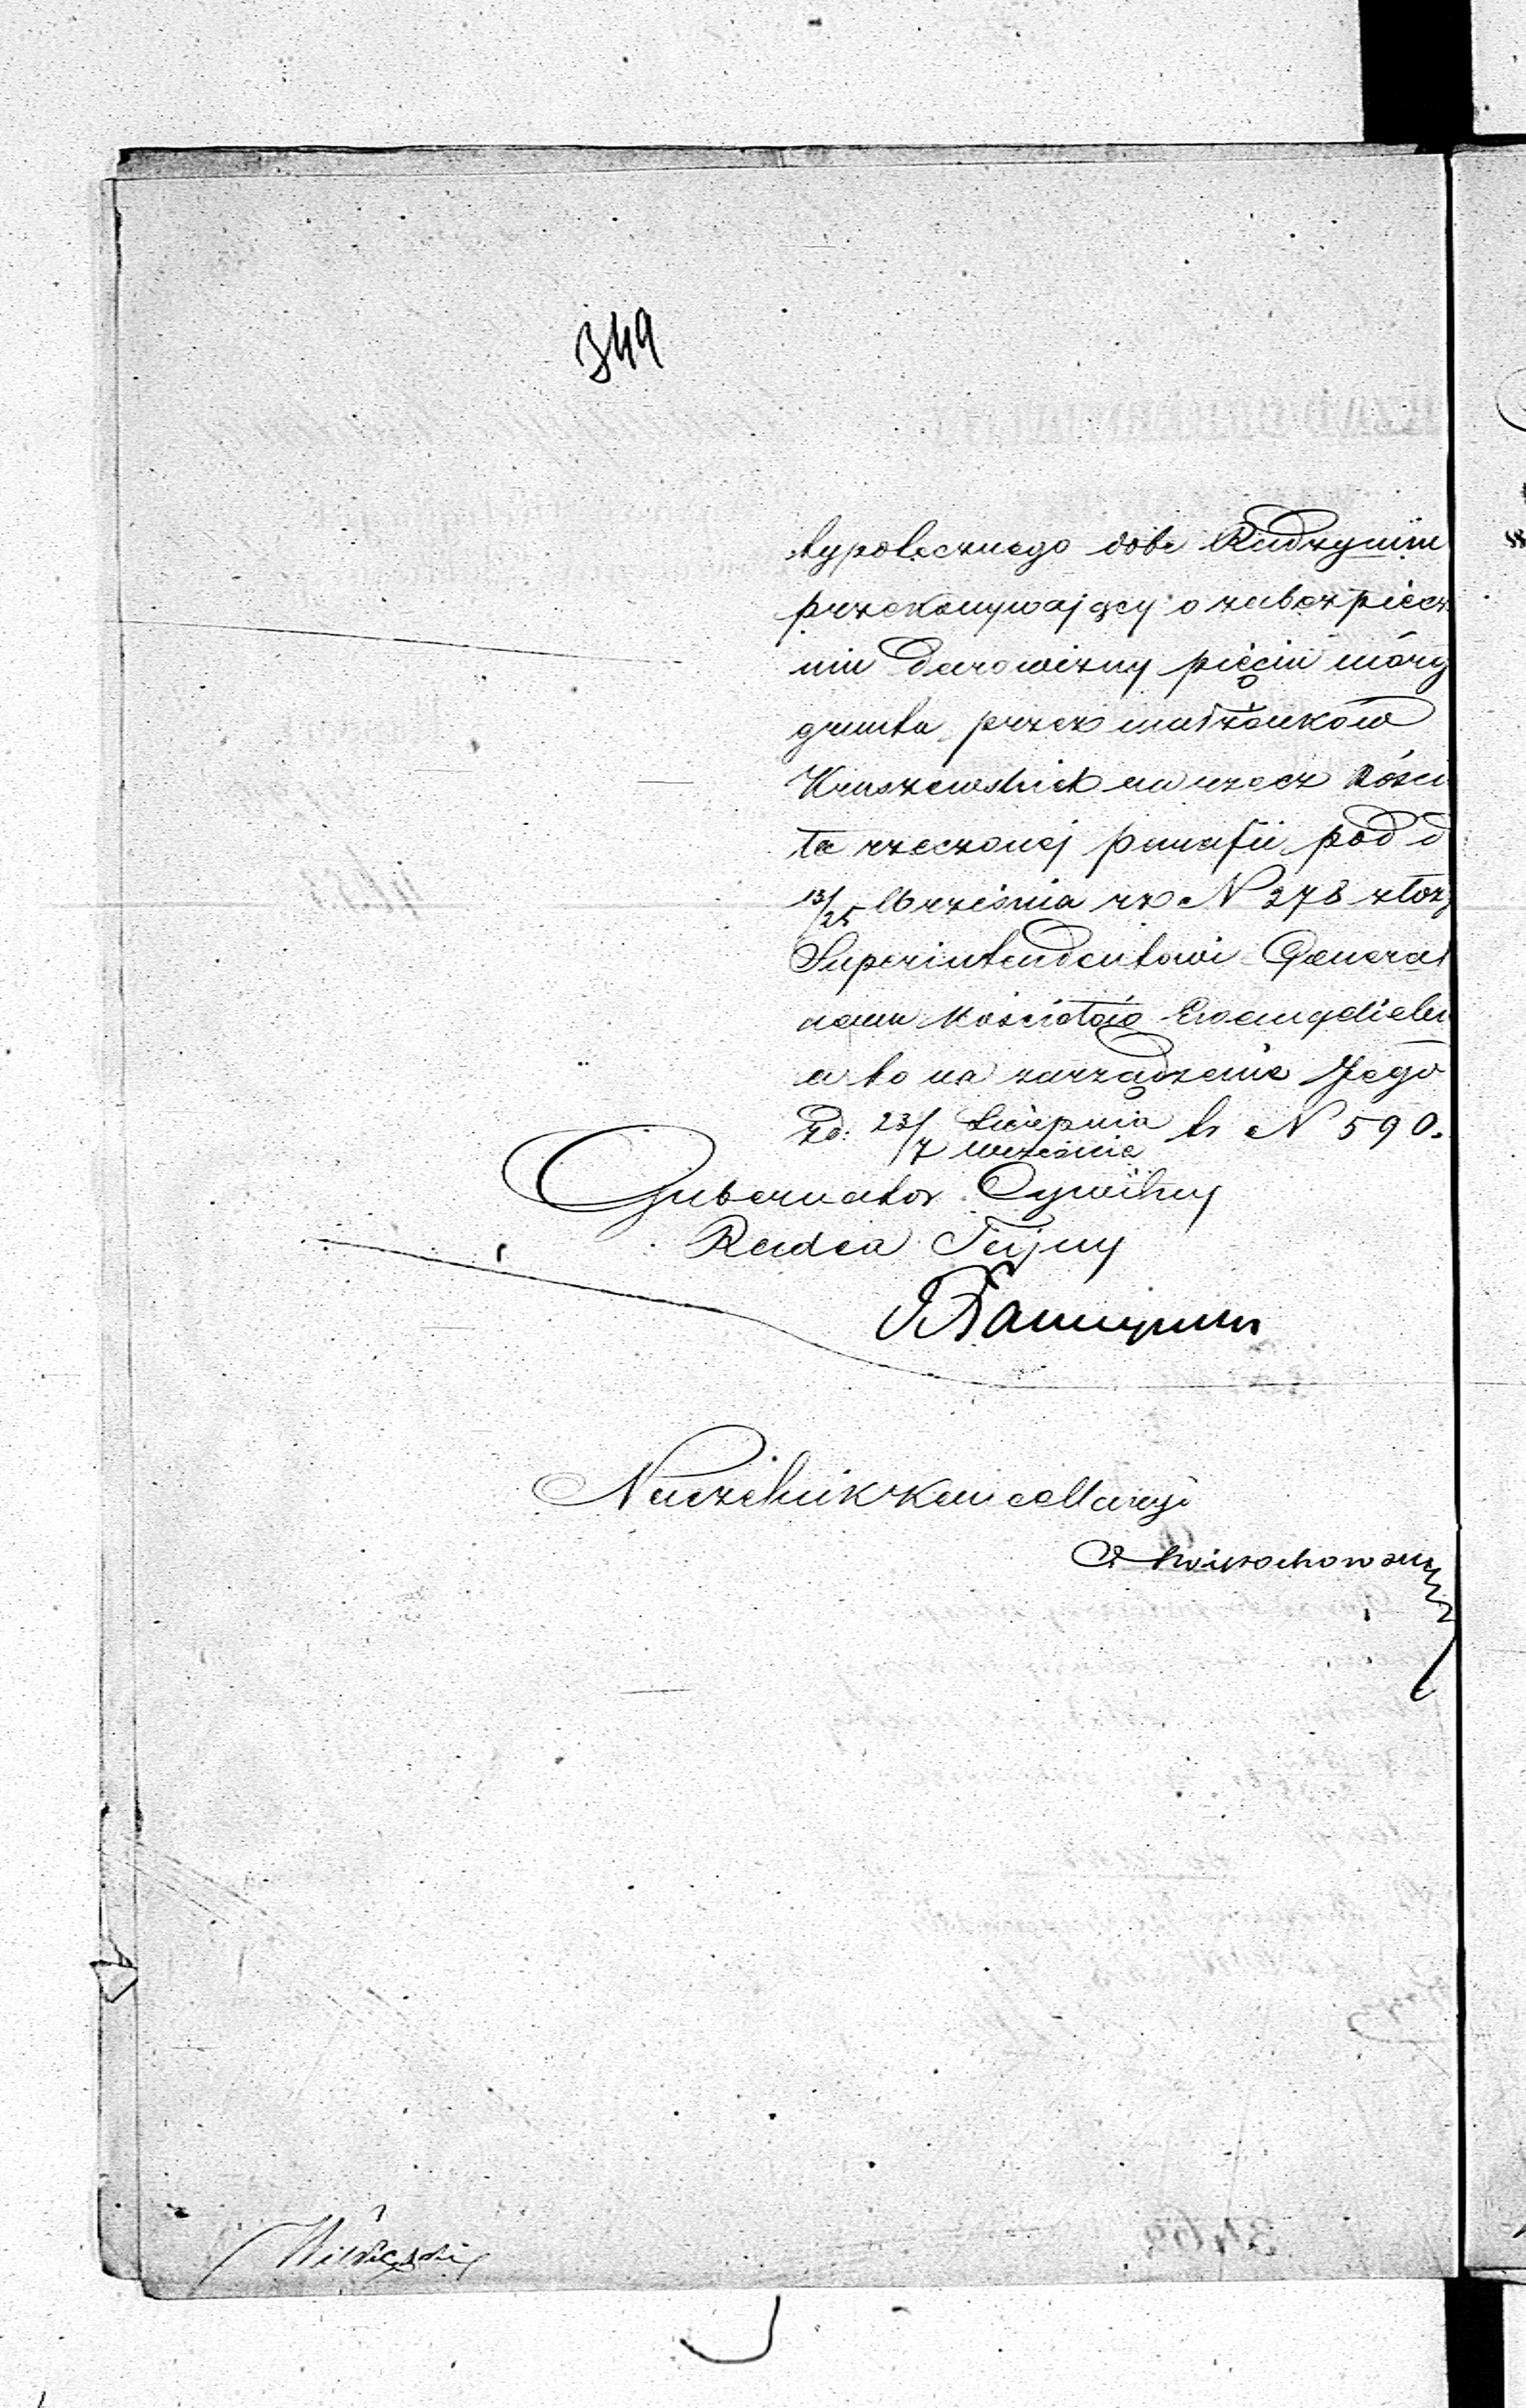 349
hypotecznego dóbr Radzymin
przekonywający o zabezpiecz
niu darowizny pięciu mórg
gruntu przez małżonków
Kruszewskich na rzecz kości
ła rzeczonej parafii pod d
13/25 Września rb N 278 złoży
Superintendentowi General
nemu Kościołów Ewangelick
a to na zarządzenie Jego
zd: 23/7 Sierpnia Września br N 590.
Gubernator Cywilny
Radca Tajny
Naczelnik Kancellaryi